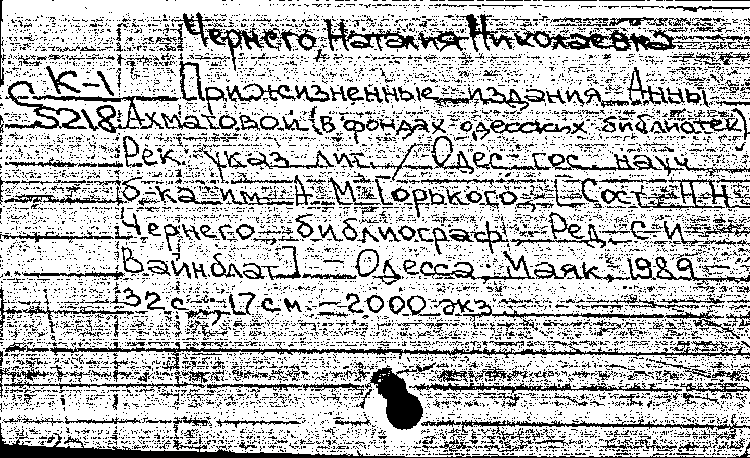 Чернего, Наталия Николаевна
К-1 Прижизненные издания Анны
5218 Ахматовой (в фондах одесских библиотек)
Рек. указ. лит. / Одес. гос. науч.
б-ка им. А. М. Горького; [Сост. Н. Н.
Чернего, библиограф; Ред. С. И.
Вайнблат]. - Одесса, Маяк, 1989 -
32 с.; 17 см. - 2000 экз.